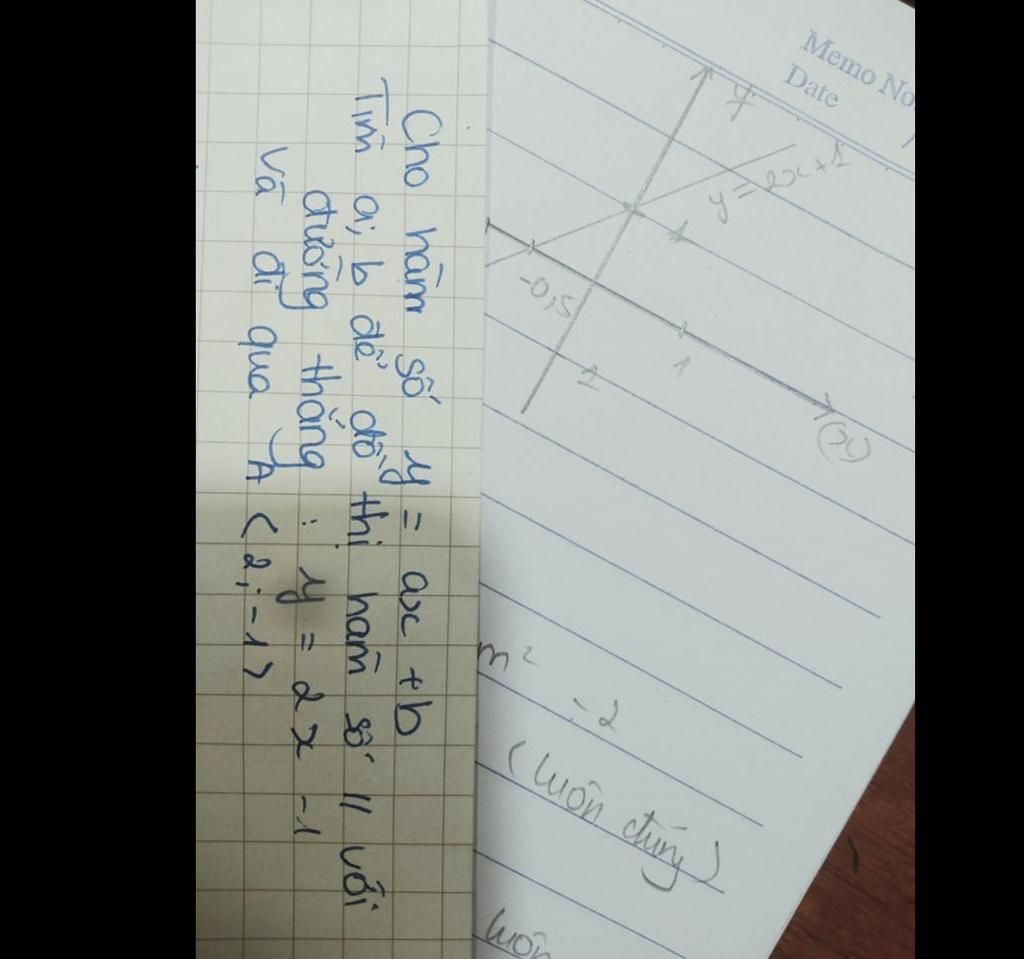 Cho hàm số y = ax + b
Tìm a; b để đồ thị hàm số // với
đường thẳng : y = 2x -1
và đi qua A (2; -1)
Memo No.
Date
y
y = 2x + 1
1
-0,5
1
1
(x)
m²
-2
(luôn đúng)
luôn